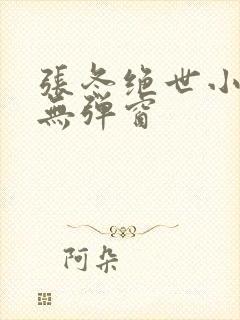 張冬绝世小
無彈窗
阿朵